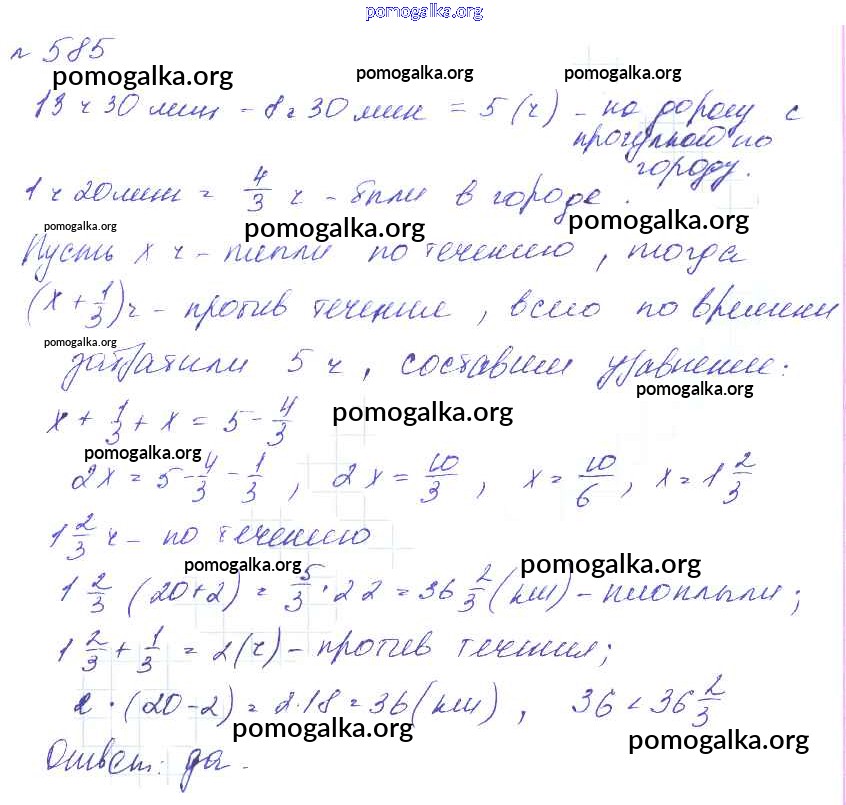 pomogalka.org
№ 585
pomogalka.org pomogalka.org pomogalka.org
13 ч 30 мин - 8 ч 30 мин = 5 (ч) - на дорогу с
прогулкой по
городу.
1 ч 20 мин = 4/3 ч - были в городе.
pomogalka.org pomogalka.org pomogalka.org
Пусть x ч - плыли по течению, тогда
(x + 1/3) ч - против течения, всего по времени
pomogalka.org
затратили 5 ч, составим уравнение:
pomogalka.org
x + 1/3 + x = 5 - 4/3
pomogalka.org
pomogalka.org
2x = 5 - 4/3 - 1/3, 2x = 10/3, x = 10/6, x = 1 2/3
1 2/3 ч - по течению
pomogalka.org pomogalka.org
1 2/3 (20+2) = 5/3 · 22 = 36 2/3 (км) - проплыли;
1 2/3 + 1/3 = 2 (ч) - против течения;
2 · (20-2) = 2·18 = 36 (км), 36 < 36 2/3
pomogalka.org pomogalka.org
Ответ: да.